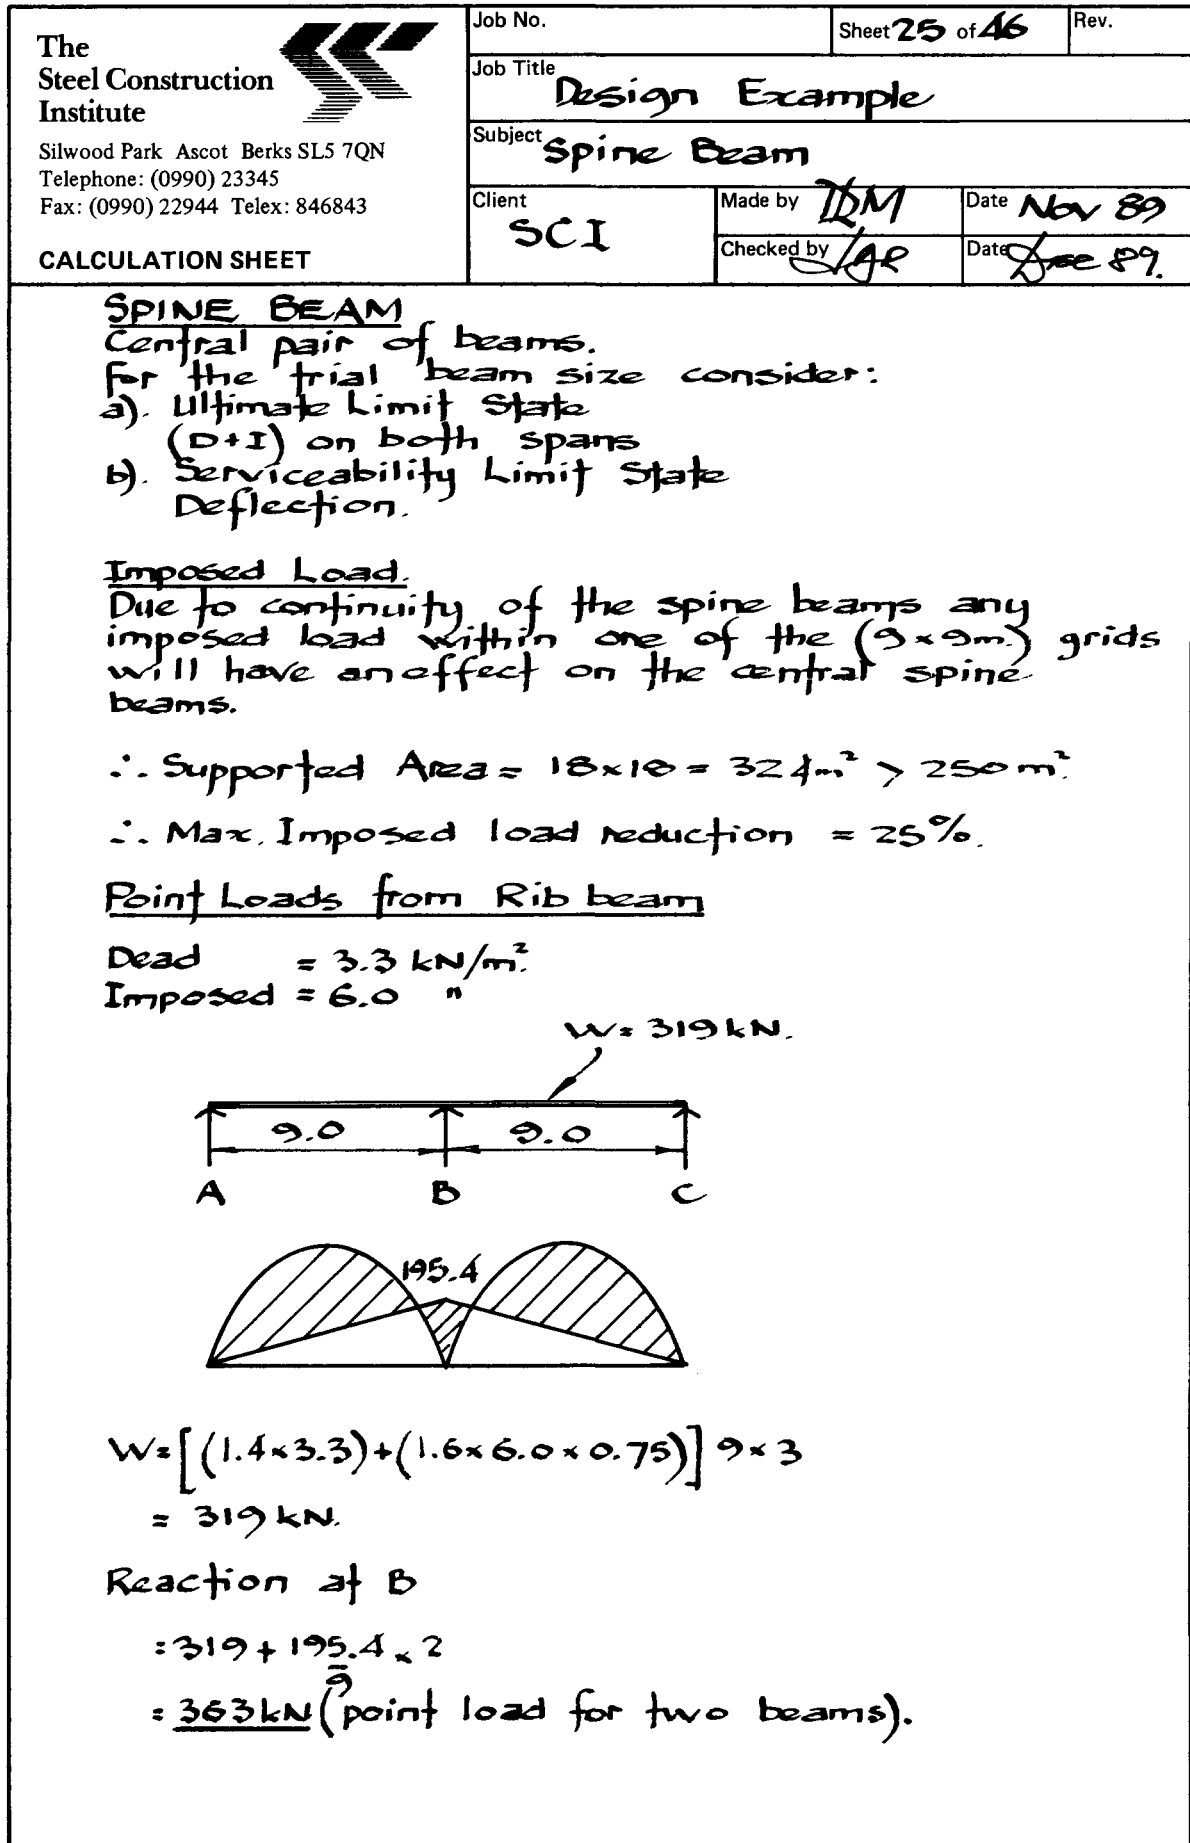 The
Steel Construction
Institute
Silwood Park Ascot Berks SL5 7QN
Telephone: (0990) 23345
Fax: (0990) 22944 Telex: 846843
CALCULATION SHEET
Job No.
Sheet 25 of 46
Rev.
Job Title
Design Example
Subject
Spine Beam
Client
SCI
Made by
Date Nov 89
Checked by
Date Dec 89.
SPINE BEAM
Central pair of beams.
For the trial beam size consider:
a). Ultimate Limit State
(D+I) on both spans
b). Serviceability Limit State
Deflection.
Imposed Load.
Due to continuity of the spine beams any
imposed load within one of the (9 x 9m.) grids
will have an effect on the central spine
beams.
∴ Supported Area = 18 x 18 = 324m² > 250 m².
∴ Max. Imposed load reduction = 25%.
Point Loads from Rib beam
Dead = 3.3 kN/m².
Imposed = 6.0 "
W = 319 kN.
9.0 9.0
A B C
195.4
W = [(1.4 x 3.3) + (1.6 x 6.0 x 0.75)] 9 x 3
= 319 kN.
Reaction at B
= 319 + 195.4 x 2
9
= 363 kN (point load for two beams).